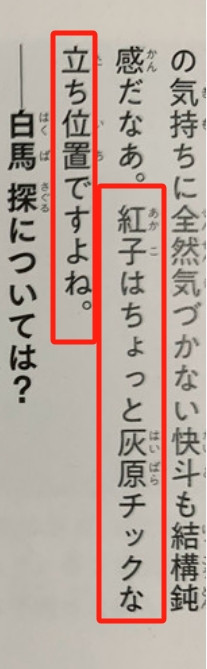 の気持ちに全然気づかない快斗も結構鈍
感だなあ。紅子はちょっと灰原チックな
立ち位置ですよね。
──白馬探については？